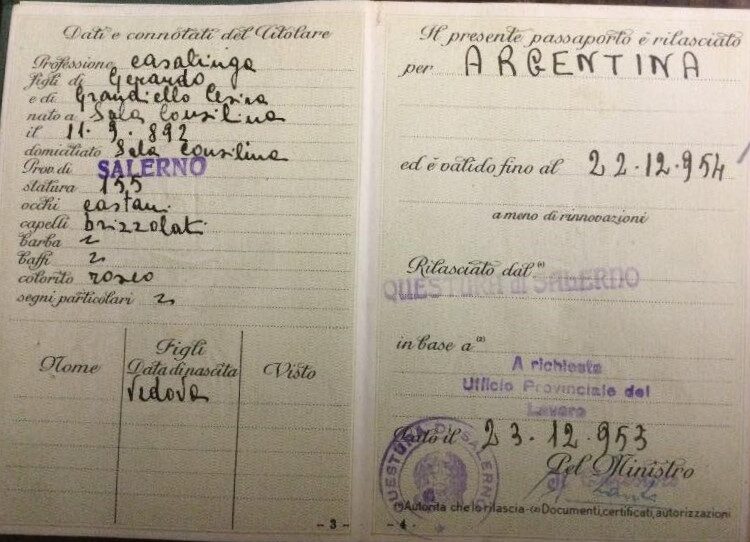 Dati e connotati del Titolare
Professione casalinga
figli di Gerardo
e di Grandiello Cesira
nato a Sala Consilina
il 11.9.892
domiciliato Sala Consilina
Prov. di SALERNO
statura 155
occhi castani
capelli brizzolati
barba
baffi
colorito roseo
segni particolari
Nome
Figli
Data di nascita
Visto
Vedova
- 3 -
Il presente passaporto è rilasciato
per ARGENTINA
ed è valido fino al 22.12.954
a meno di rinnovazioni
Rilasciato dal (1)
QUESTURA di SALERNO
in base a (2)
A richiesta
Ufficio Provinciale del
Lavoro
Dato il 23.12.953
Pel Ministro
QUESTURA DI SALERNO
(1) Autorità che lo rilascia - (2) Documenti, certificati, autorizzazioni
- 4 -